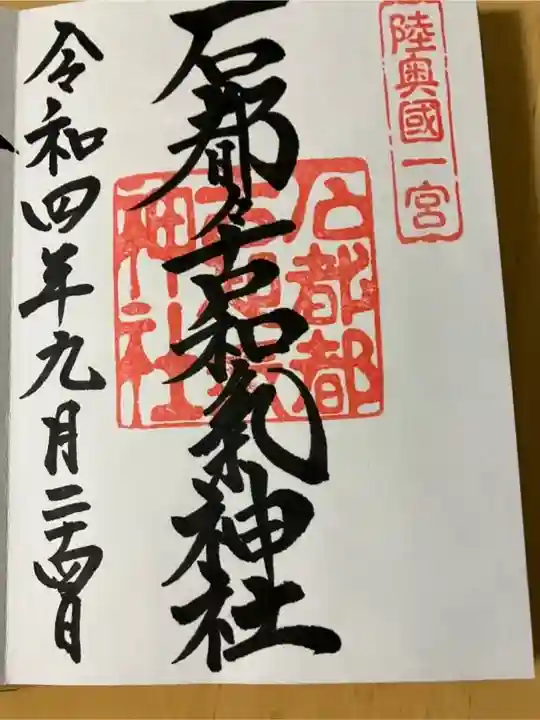 陸奥國一宮
石都々古和氣神社
石都都
古和氣
神社
令和四年九月二十四日